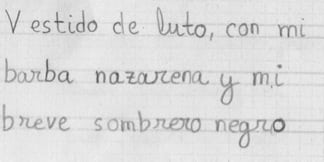 Vestido de luto, con mi
barba nazarena y mi
breve sombrero negro